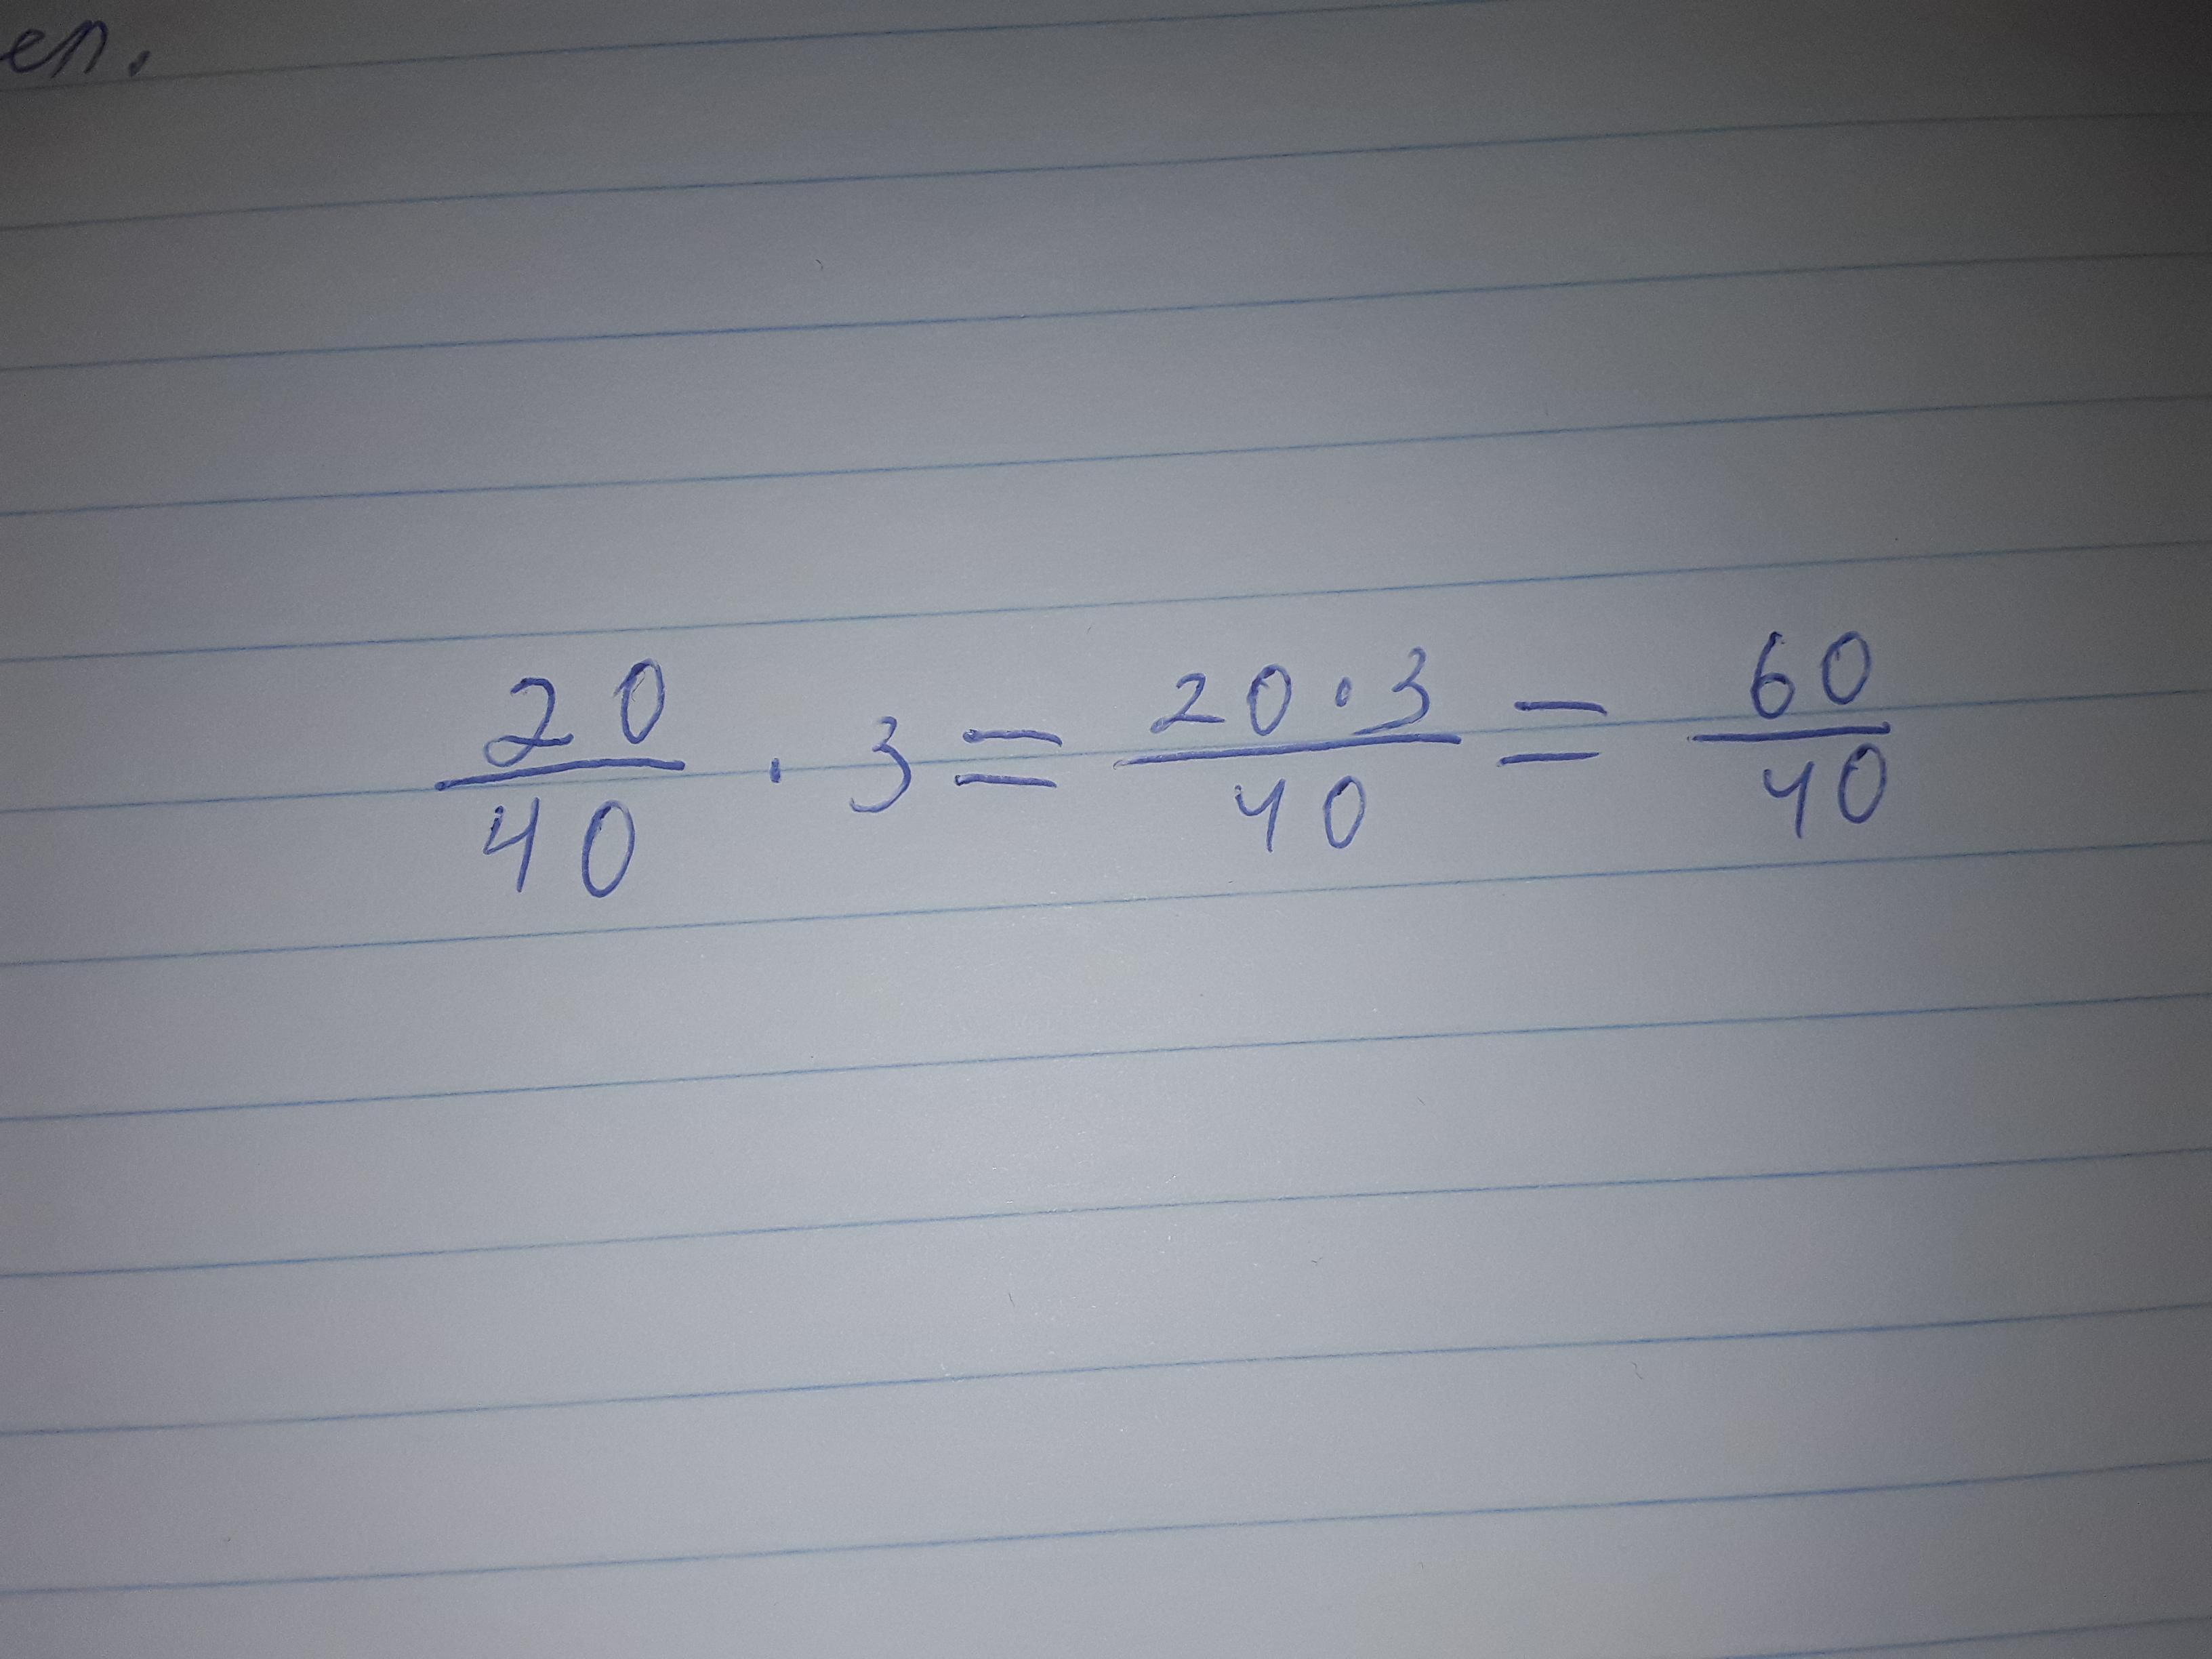 en.
20/40 · 3 = 20·3/40 = 60/40